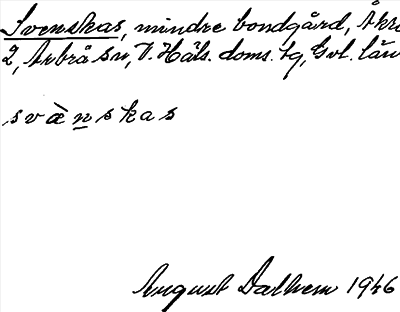 Svenskas, mindre bondgård, Åkre
2, Arbrå sn, V. Häls. doms. tg, Gvl. län
svänskas
August Dalhem 1946